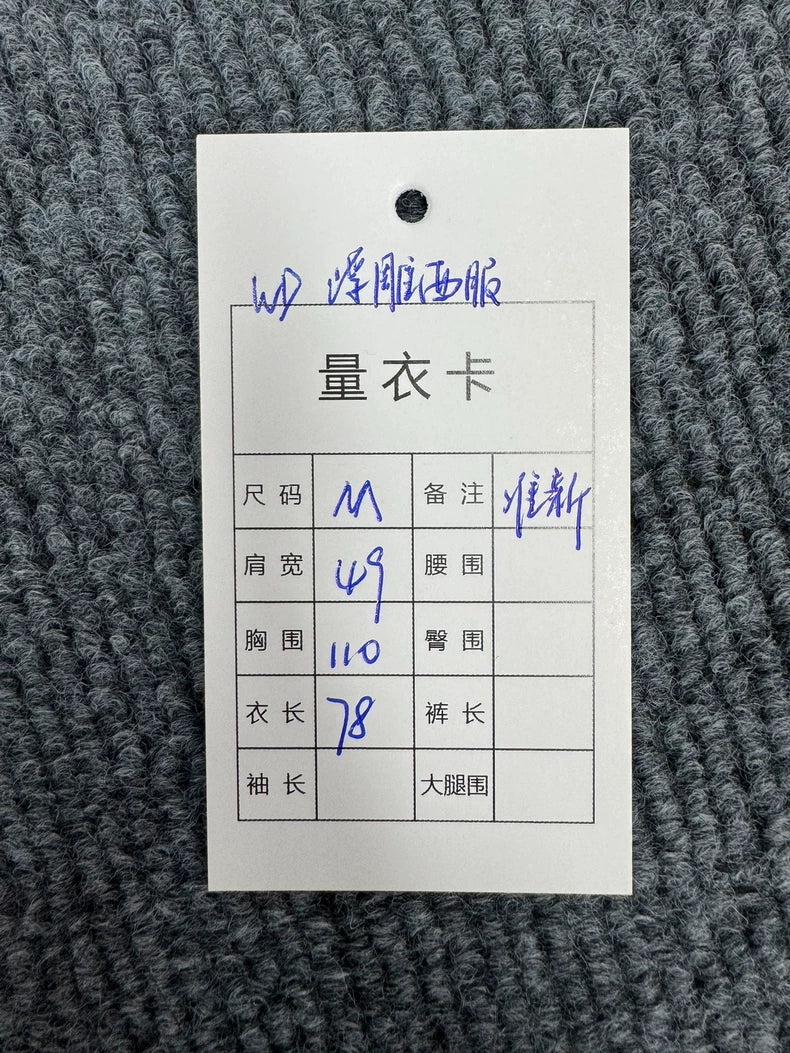 WD 浮雕西服
量衣卡
尺码 M 备注 准新
肩宽 49 腰围
胸围 110 臀围
衣长 78 裤长
袖长 大腿围